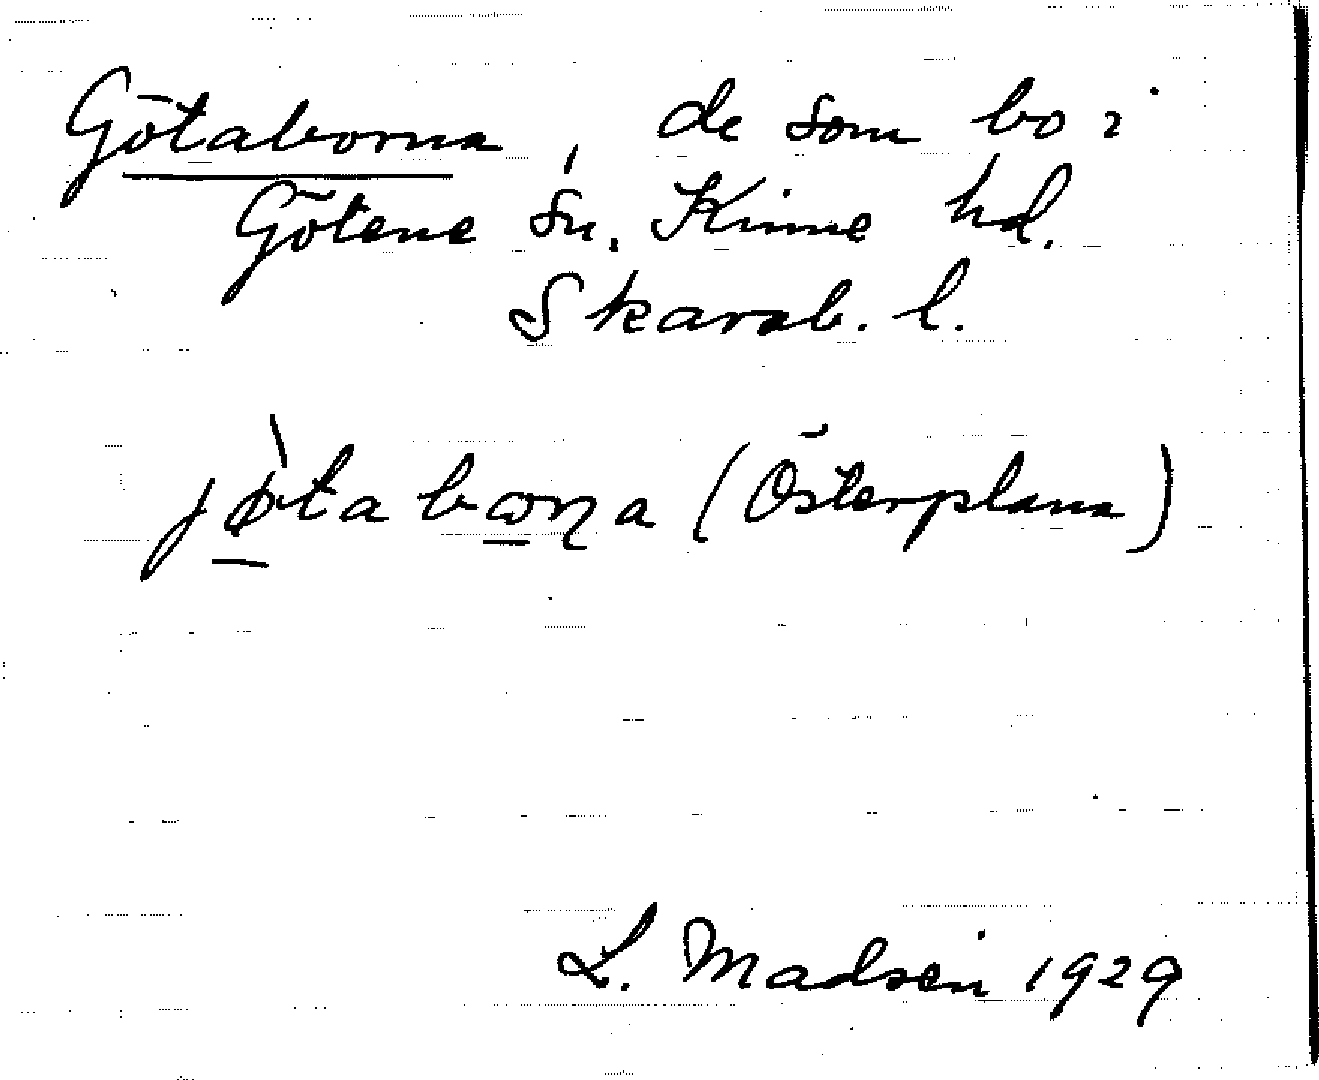 Götaborna, de som bo i
Götene sn. Kinne hd.
Skarab. l.
jø̀taboɳa (Österplana)
L. Madsén 1929